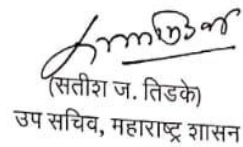 (सतीश ज. तिडके)
उप सचिव, महाराष्ट्र शासन